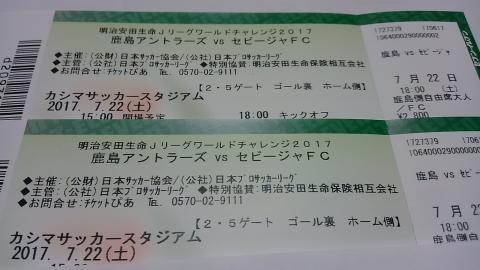 明治安田生命Jリーグワールドチャレンジ2017
鹿島アントラーズ vs セビージャFC
◆主催：(公財)日本サッカー協会/(公社)日本プロサッカーリーグ
◆主管：(公社)日本プロサッカーリーグ ◆特別協賛：明治安田生命保険相互会社
◆お問合せ：チケットぴあ ℡. 0570-02-9111
【2・5ゲート ゴール裏 ホーム側】
カシマサッカースタジアム
2017. 7.22(土)
15:00 開場予定 18:00 キックオフ
1727379 170617
鹿島 vs セビージャ
7月22日
18:00 (土)
鹿島側自由席大人
/FC
¥2,800
明治安田生命Jリーグワールドチャレンジ2017
鹿島アントラーズ vs セビージャFC
◆主催：(公財)日本サッカー協会/(公社)日本プロサッカーリーグ
◆主管：(公社)日本プロサッカーリーグ ◆特別協賛：明治安田生命保険相互会社
◆お問合せ：チケットぴあ ℡. 0570-02-9111
【2・5ゲート ゴール裏 ホーム側】
カシマサッカースタジアム
2017. 7.22(土)
1727379
鹿島 vs セビ
7月22
18:00